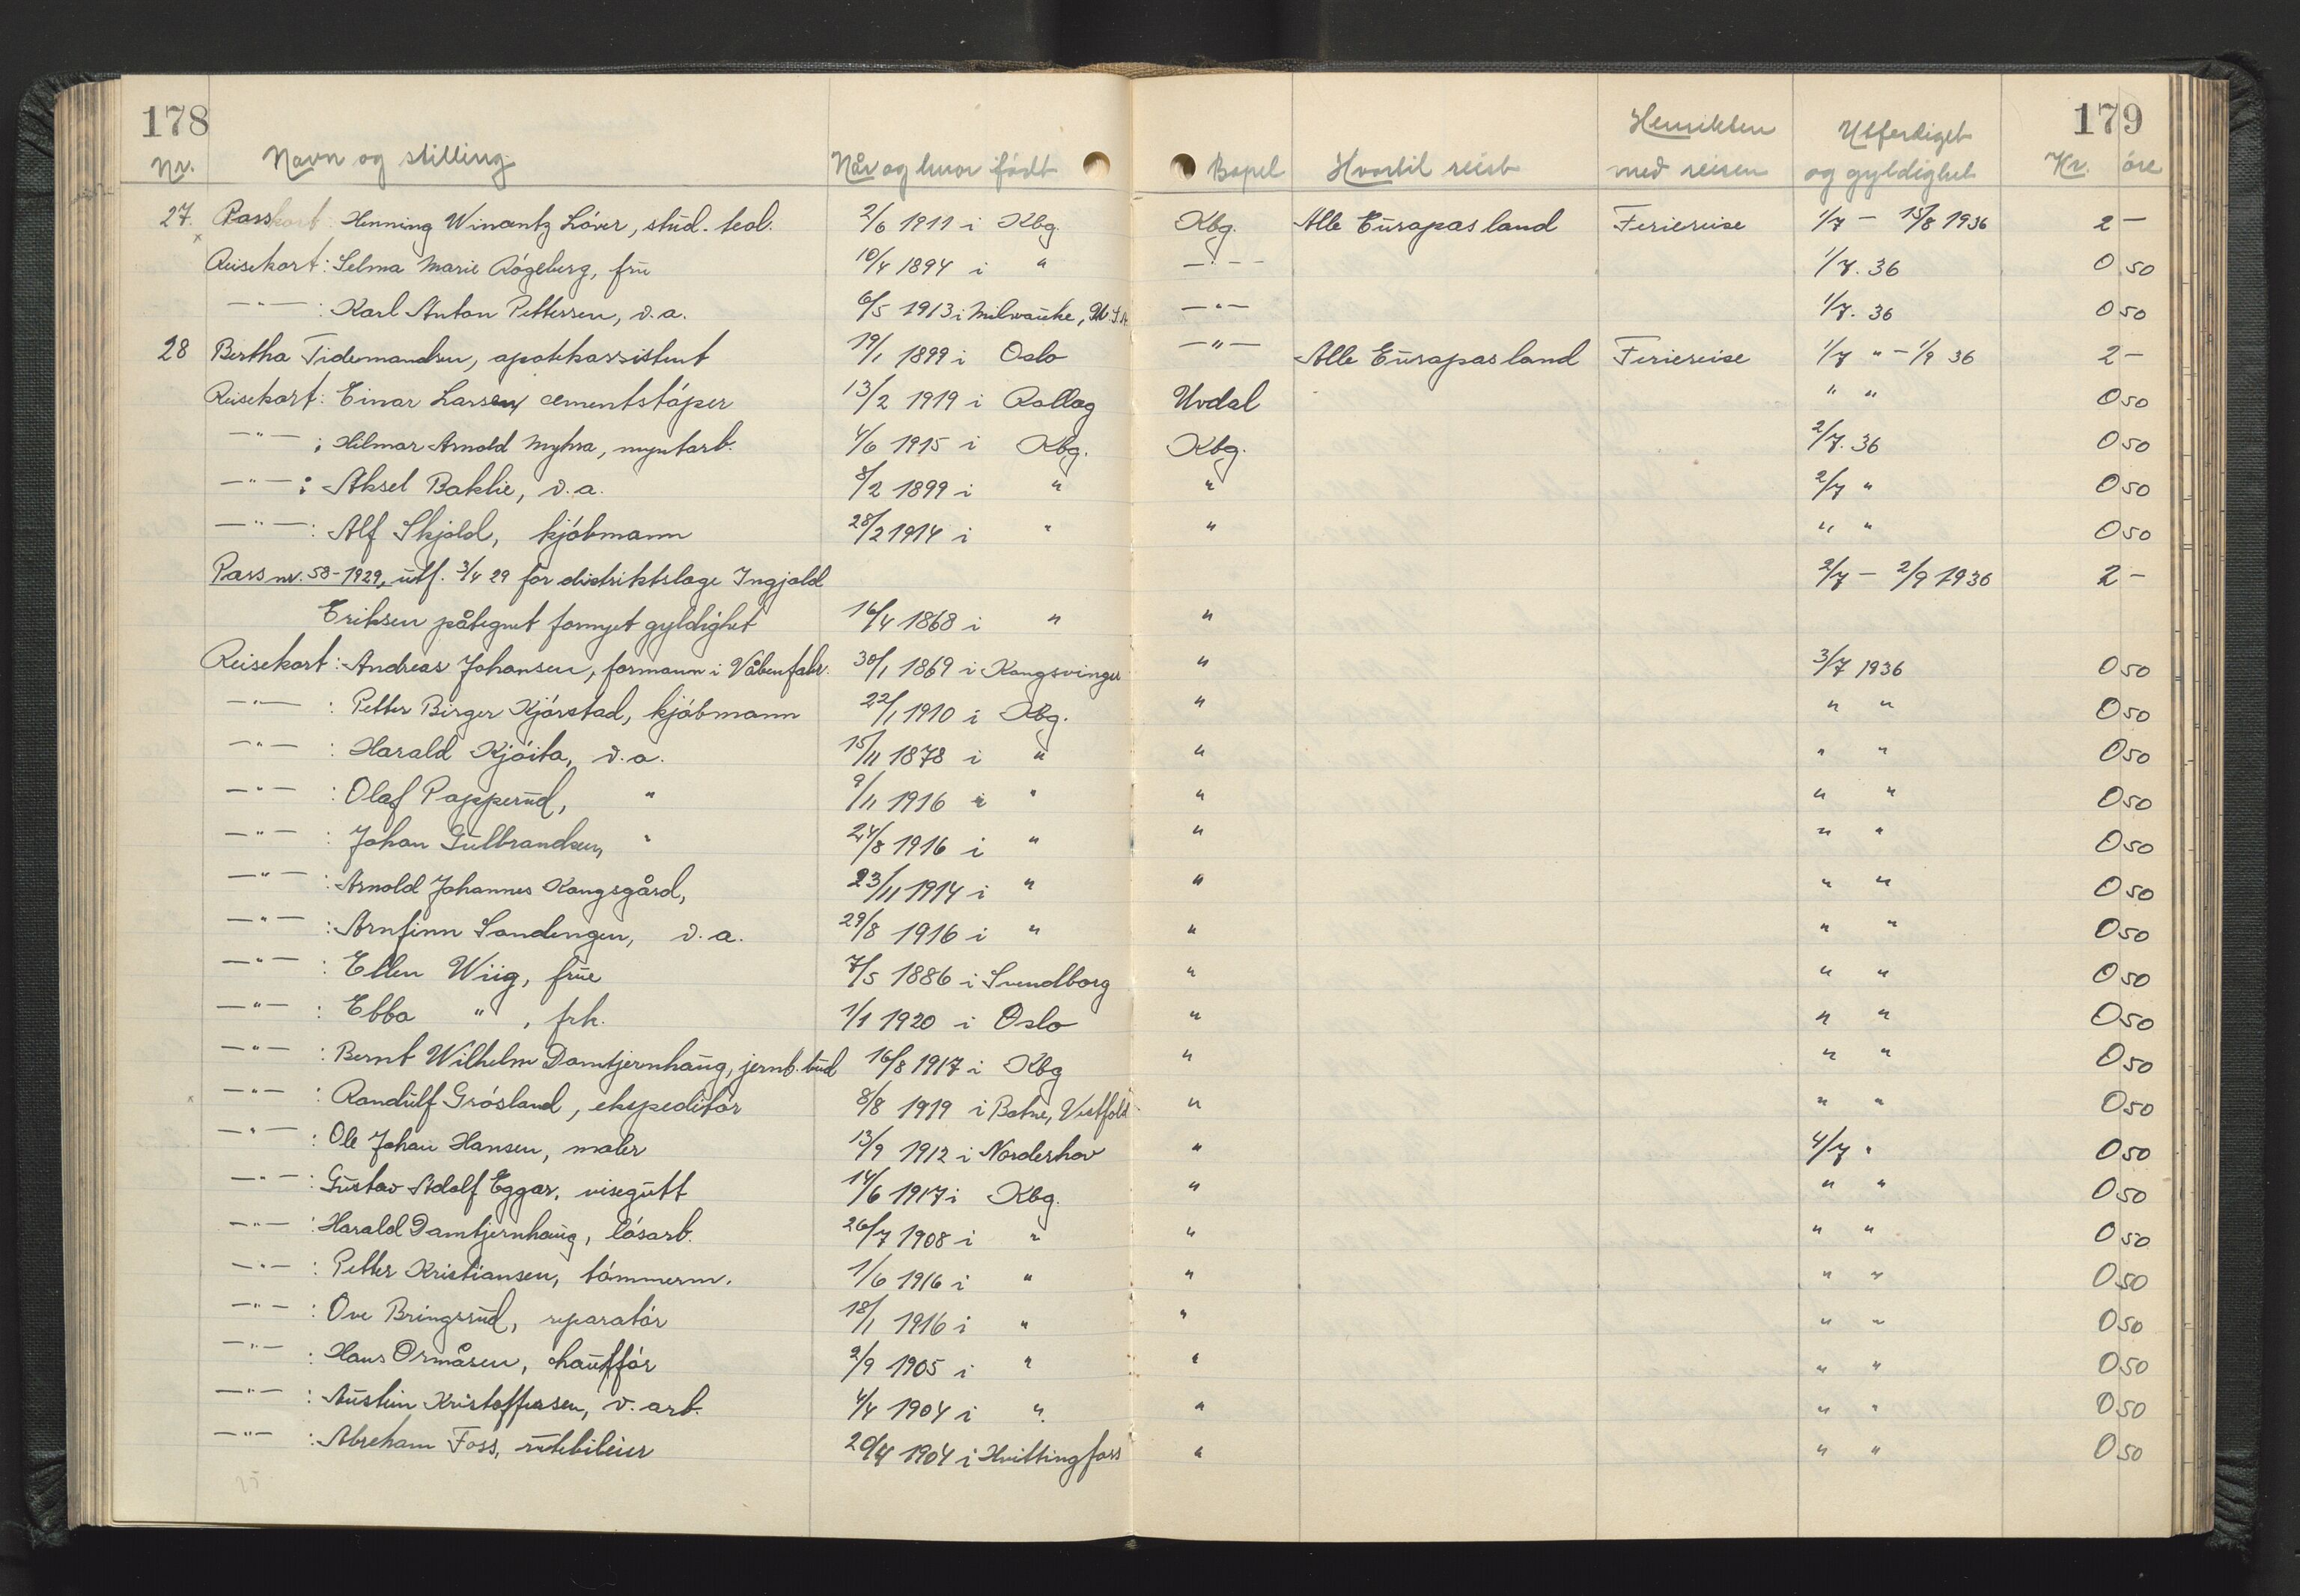 178 179
Nr. Navn og stilling Når og hvor født Bopel Hvortil reist Hensikten med reisen Utferdiget og gyldighet Kr. øre
27. Passkort Henning Winantz Löver, stud. teol. 2/6 1911 i Kbg. Kbg. Alle Europas land Feriereise 1/7 - 15/8 1936 2 -
Reisekort: Selma Marie Rögeberg, fru 10/4 1894 i " - " - 1/7. 36 0 50
- " - : Karl Anton Pettersen, v.a. 6/5 1913 i Milwauke, U.S.A. - " - 1/7. 36 0 50
28 Bertha Tidemandsen, apotekassistent 19/1 1899 i Oslo - " - Alle Europas land Feriereise 1/7 " - 1/9 36 2 -
Reisekort: Einar Larsen, cementstöper 13/2 1919 i Rollag Uvdal " " 0 50
- " - : Hilmar Arnold Myhra, myntarb. 4/6 1915 i Kbg. Kbg. 2/7. 36 0 50
- " - : Aksel Baklie, v.a. 8/2 1899 i " " 2/7 " 0 50
- " - : Alf Skjold, kjöbmann 28/2 1914 i " " " " 0 50
Pass nr. 58-1929, utf. 3/4 29 for distriktslæge Ingjald 2/7 - 2/9 1936 2 -
Eriksen påtegnet fornyet gyldighet 16/4 1868 i " "
Reisekort: Andreas Johansen, formann i Våbenfabr. 30/1 1869 i Kongsvinger " 3/7 1936 0 50
- " - : Petter Birger Kjörstad, kjöbmann 22/1 1910 i Kbg. " " " 0 50
- " - : Harald Kjöita, v.a. 15/11 1878 i " " " " 0 50
- " - : Olaf Papperud, " 9/11 1916 i " " " " 0 50
- " - : Johan Gulbrandsen, " 24/8 1916 i " " " " 0 50
- " - : Arnold Johannes Kongsgård, 23/11 1914 i " " " " 0 50
- " - : Arnfinn Sandengen, v.a. 29/8 1916 i " " " " 0 50
- " - : Ellen Wiig, frue 7/5 1886 i Svendborg " " " 0 50
- " - : Ebba " , frk. 1/1 1920 i Oslo " " " 0 50
- " - : Bernt Wilhelm Damtjernhaug, jernb. bud 16/8 1917 i Kbg " " " 0 50
- " - : Randulf Grösland, ekspeditör 8/8 1919 i Botne, Vestfold " " " 0 50
- " - : Ole Johan Hansen, maler 13/9 1912 i Norderhov " 4/7 " 0 50
- " - : Gustav Adolf Eggar, visegutt 14/6 1917 i Kbg. " " " 0 50
- " - : Harald Damtjernhaug, lösarb. 26/7 1908 i " " " " 0 50
- " - : Petter Kristiansen, tömmerm. 1/6 1916 i " " " " 0 50
- " - : Ove Bringsrud, reparatör 18/1 1916 i " " " " 0 50
- " - : Hans Ormåsen, chaufför 2/9 1905 i " " " " 0 50
- " - : Austein Kristoffersen, v. arb. 4/4 1904 i " " " " 0 50
- " - : Abreham Foss, rutebileier 20/4 1904 i Hvittingfoss " " " 0 50
25